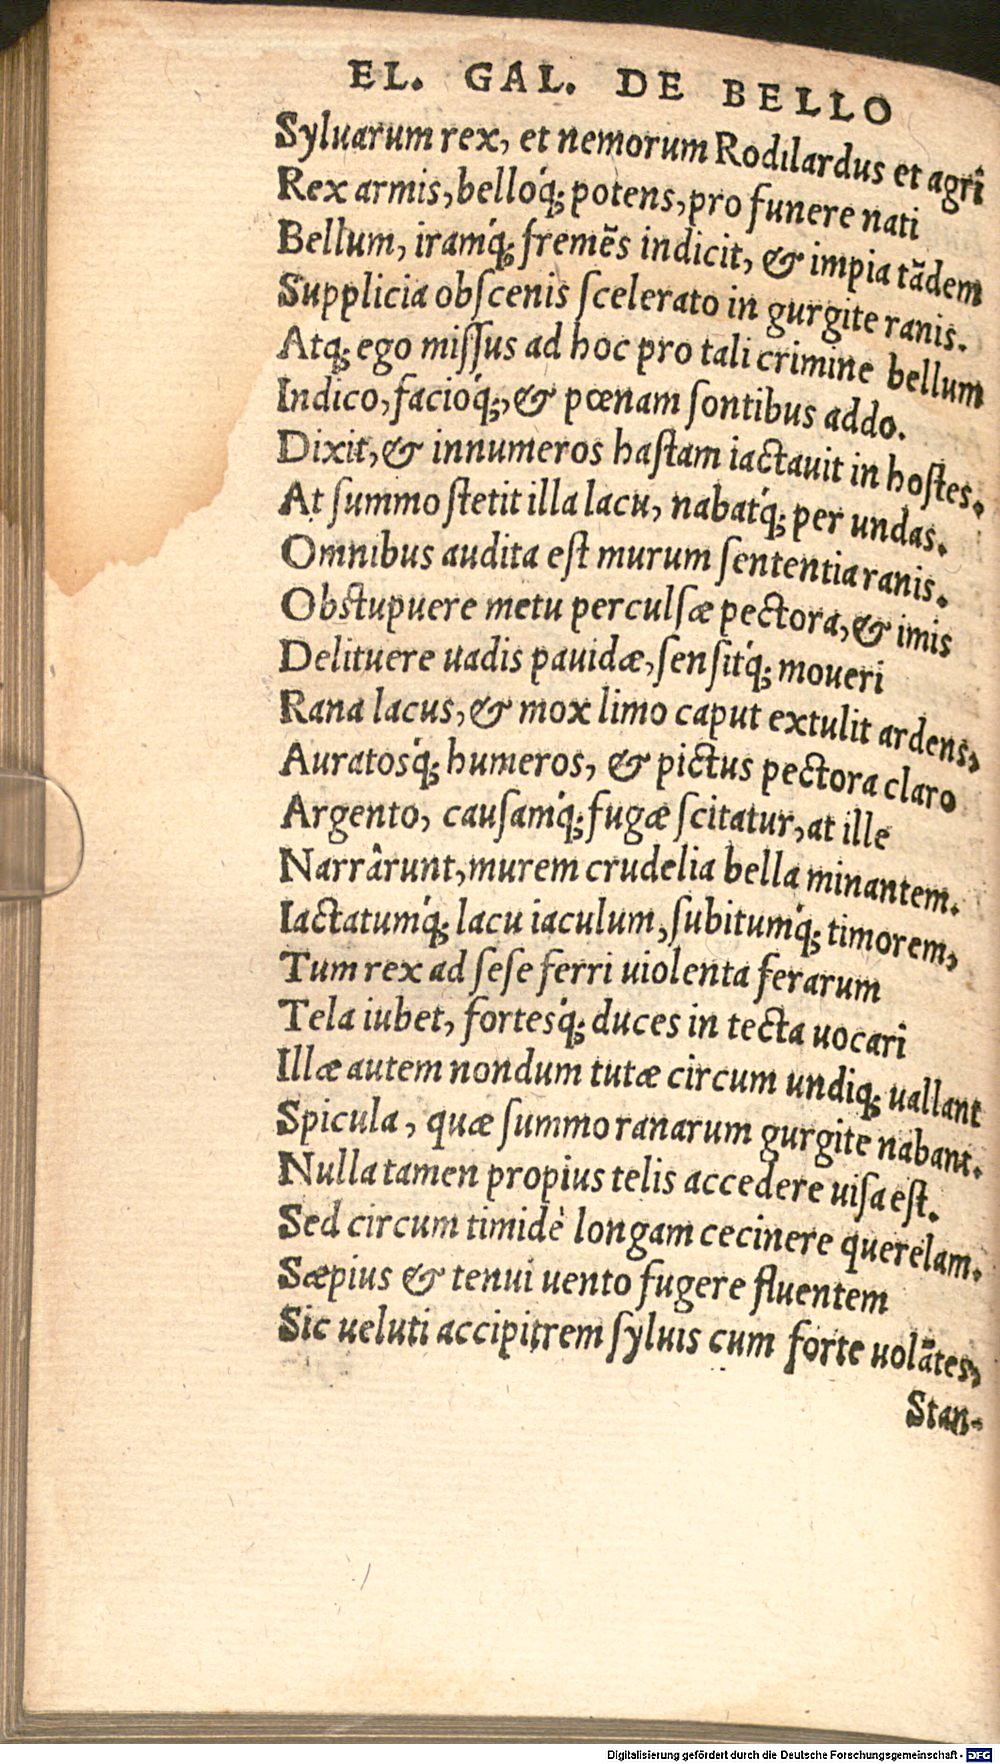 EL. GAL. DE BELLO
Syluarum rex, et nemorum Rodilardus et agrî
Rex armis, belloq́; potens, pro funere nati
Bellum, iramq́; fremēs indicit, & impia tādem
Supplicia obſcenis ſcelerato in gurgite ranis.
Atq; ego miſſus ad hoc pro tali crimine bellum
Indico, facioq́;, & pœnam ſontibus addo.
Dixit, & innumeros haſtam iactauit in hoſtes.
At ſummo ſtetit illa lacu, nabatq́; per undas.
Omnibus audita eſt murum ſententia ranis.
Obſtupuere metu perculſæ pectora, & imis
Delituere uadis pauidæ, ſenſitq́; moueri
Rana lacus, & mox limo caput extulit ardens,
Auratosq́; humeros, & pictus pectora claro
Argento, cauſamq́; fugæ ſcitatur, at ille
Narrârunt, murem crudelia bella minantem.
Iactatumq́; lacu iaculum, ſubitumq́; timorem,
Tum rex ad ſeſe ferri uiolenta ferarum
Tela iubet, fortesq́; duces in tecta uocari
Illæ autem nondum tutæ circum undiq; uallant
Spicula, quæ ſummo ranarum gurgite nabant.
Nulla tamen propius telis accedere uiſa eſt.
Sed circum timidè longam cecinere querelam.
Sæpius & tenui uento fugere fluentem
Sic ueluti accipitrem ſyluis cum forte uolātes,
Stan-
Digitalisierung gefördert durch die Deutsche Forschungsgemeinschaft - DFG